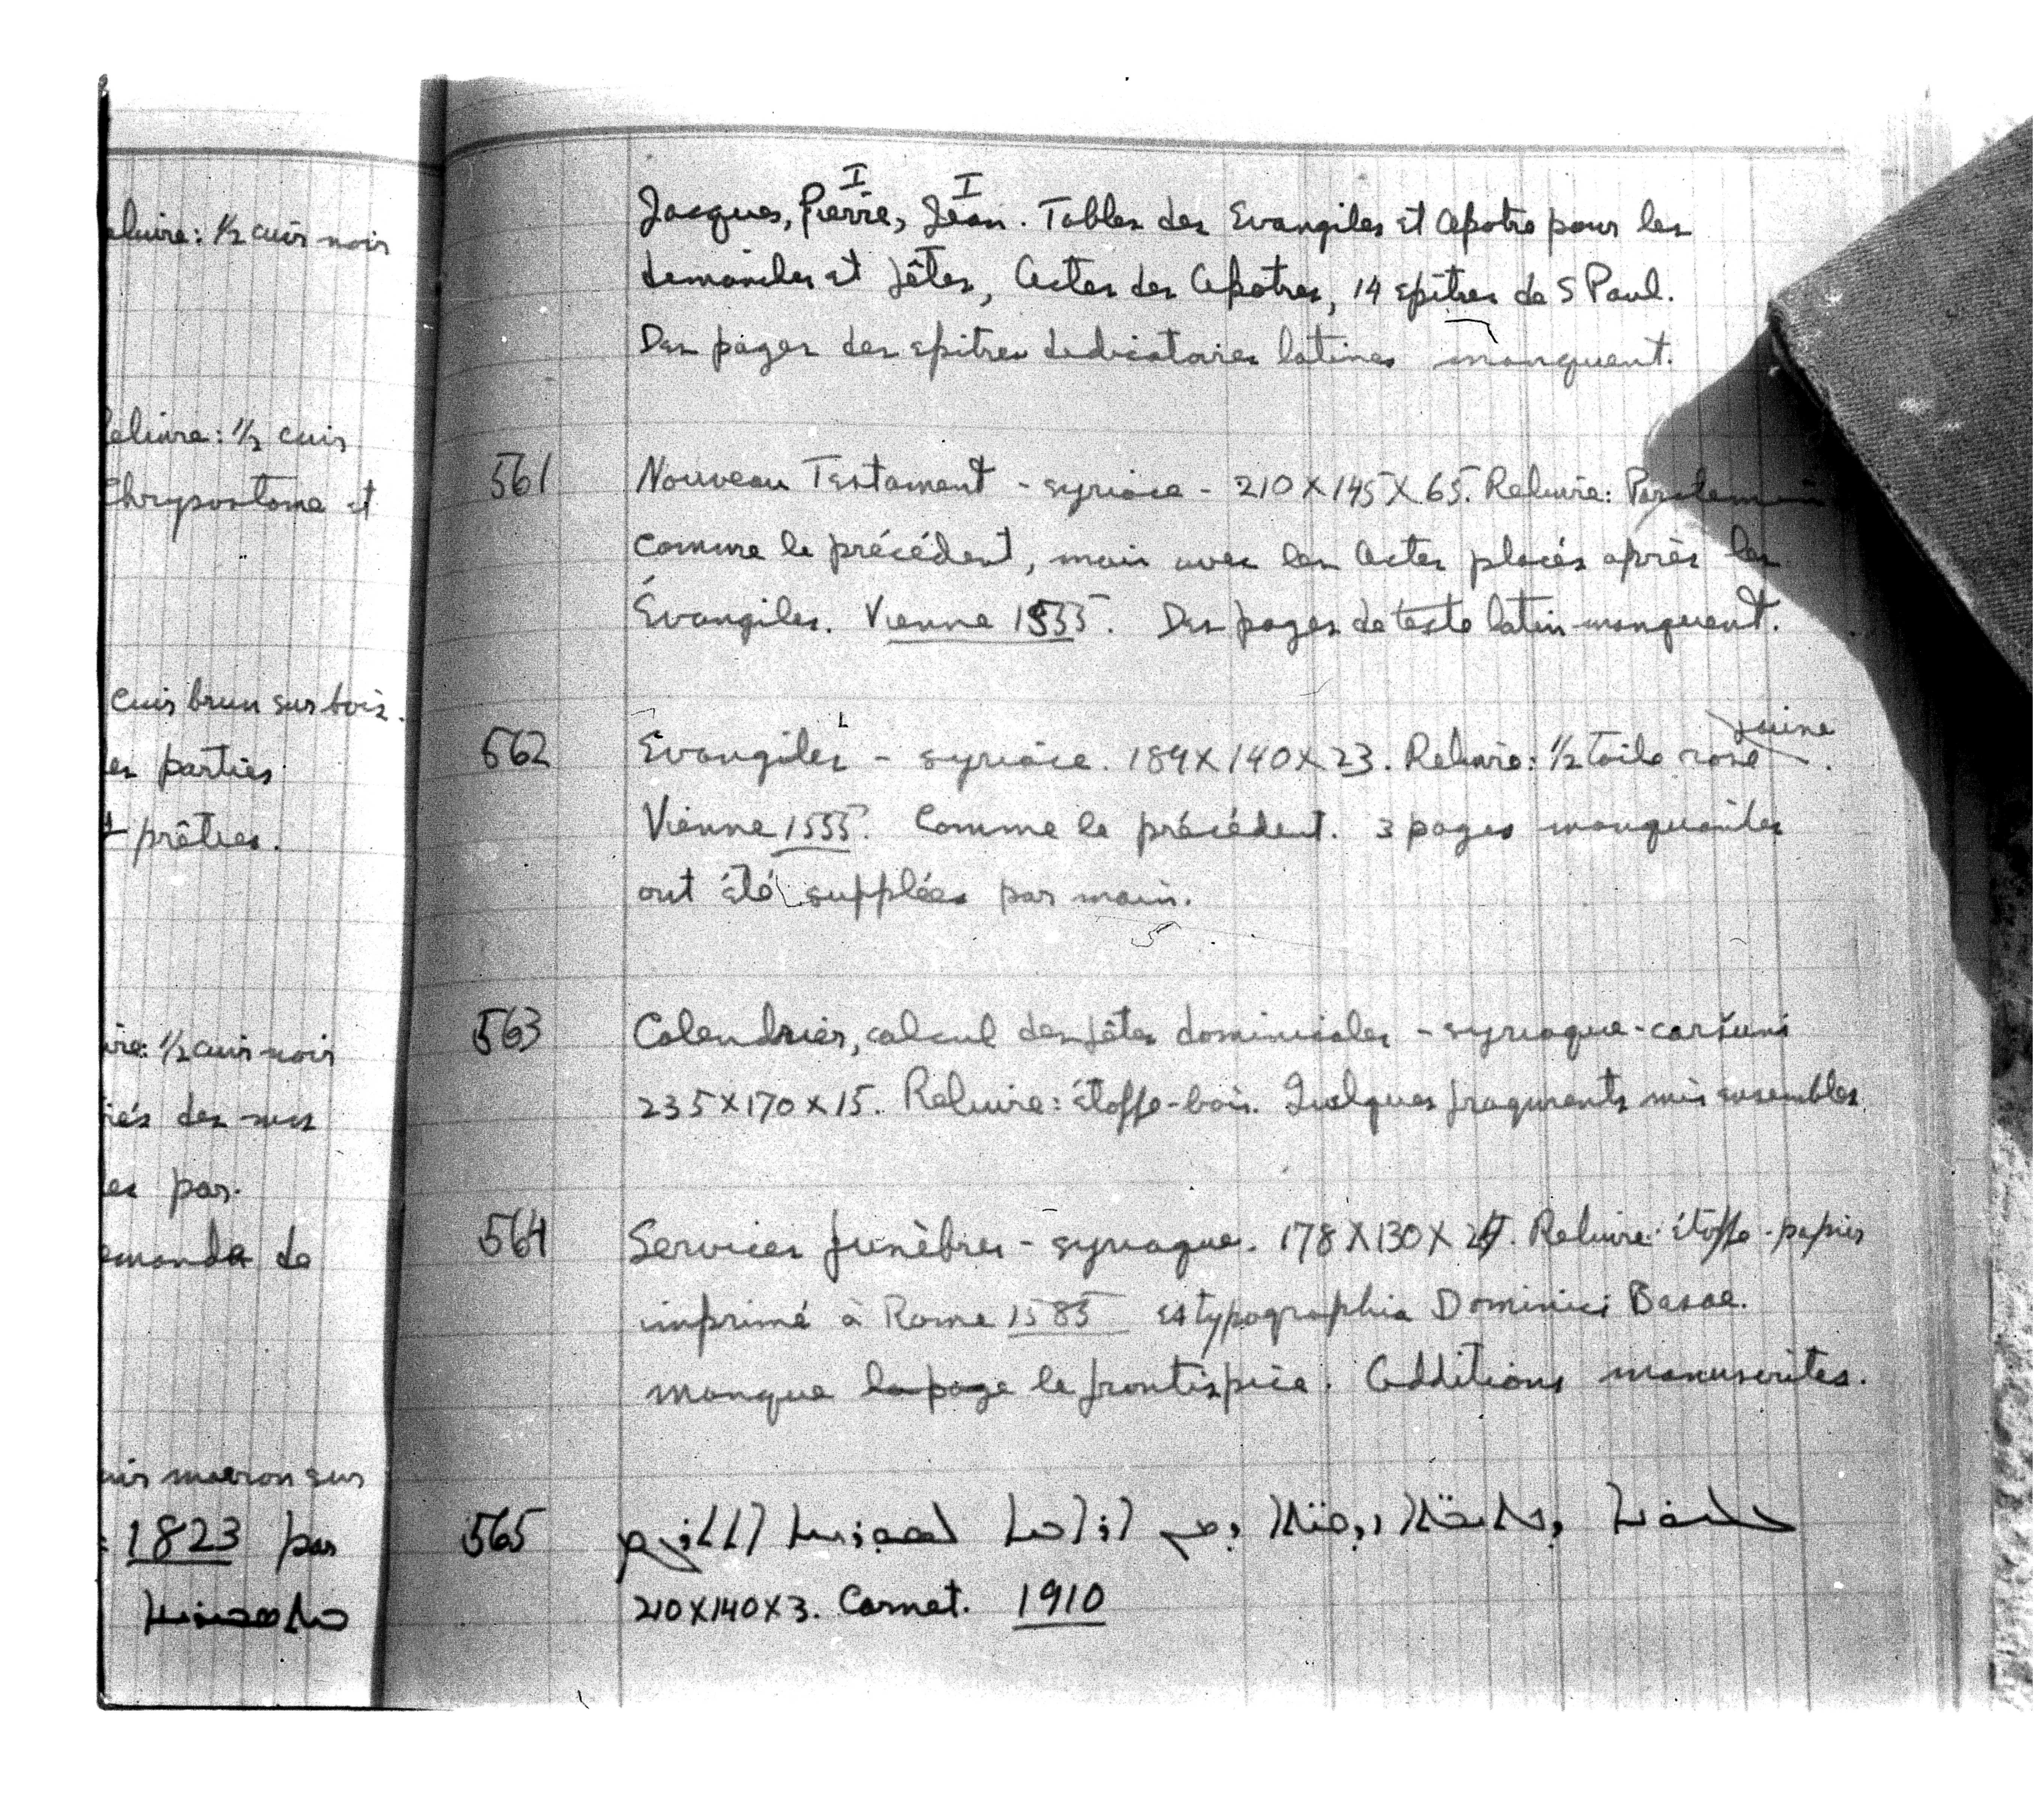 eliure: 1/2 cuir noir
eliure: 1/2 cuir
Chrysostome et
cuir brun sur bois.
es parties
prêtres.
ire: 1/2 cuir noir
des mss
es par
emande de
uir marron sur
1823 par
I I
Jacques, Pierre, Jean. Tables des Evangiles et Apotre pour les
dimanches et fêtes, Actes des Apotres, 14 epitres de S Paul.
Des pages des epitres dedicatoires latines manquent.
561 Nouveau Testament - syriace - 210 X 145 X 65. Reliure:
comme le précédent, mais avec les Actes placés après les
Évangiles. Vienne 1555. Des pages de texte latin manquent.
562 Evangiles - syriace. 184 X 140 X 23. Reliure: 1/2 toile rose
Vienne 1555. Comme le précédent. 3 pages manquantes
ont été supplées par main.
563 Calendrier, calcul des fêtes dominicales - syriaque - carsuni
235 X 170 X 15. Reliure: étoffe-bois. Quelques fragments mis ensembles
564 Services funèbres - syriaque. 178 X 130 X Reliure: étoffe - papier
imprimé à Rome 1585 typographia Dominici Basae.
manque la page le frontispice. Additions manuscrites.
565
210 X 140 X 3. Carnet. 1910